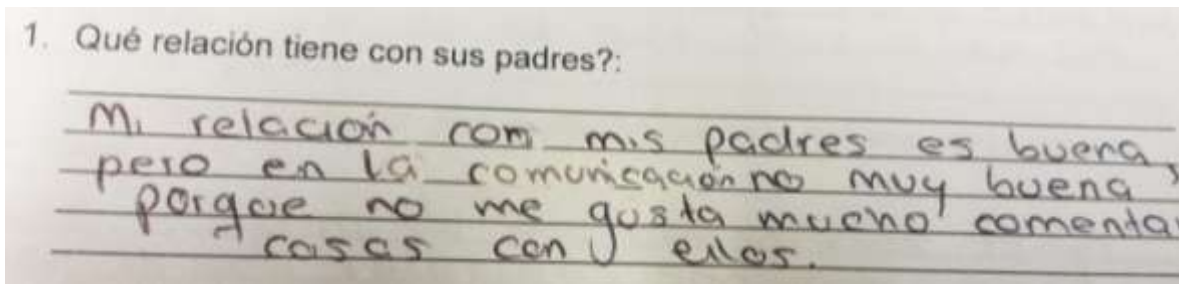 1. Qué relación tiene con sus padres?:
Mi relación con mis padres es buena,
pero en la comunicación no muy buena
porque no me gusta mucho comenta
cosas con ellos.